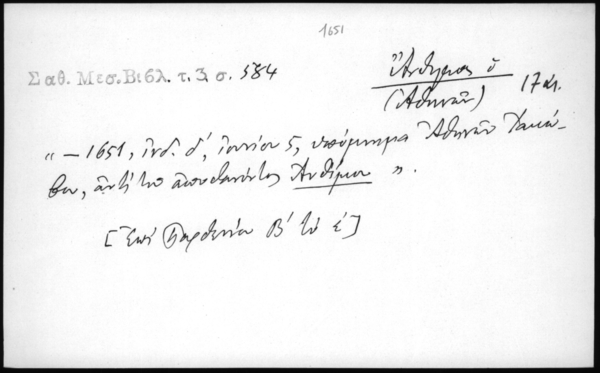 1651
Σαθ. Μεσ. Βιβλ. τ. 3, σ. 584
Ἄνθιμος ὁ
(Ἀθηνῶν) 17 αι.
« — 1651, ἰνδ. δ', ἰουνίου 5, ὑπόμνημα Ἀθηνῶν Ἰακώ-
βου, ἀντὶ τοῦ ἀποθανόντος Ἀνθίμου ».
[Ἐπὶ Παρθενίου Β' τὸ